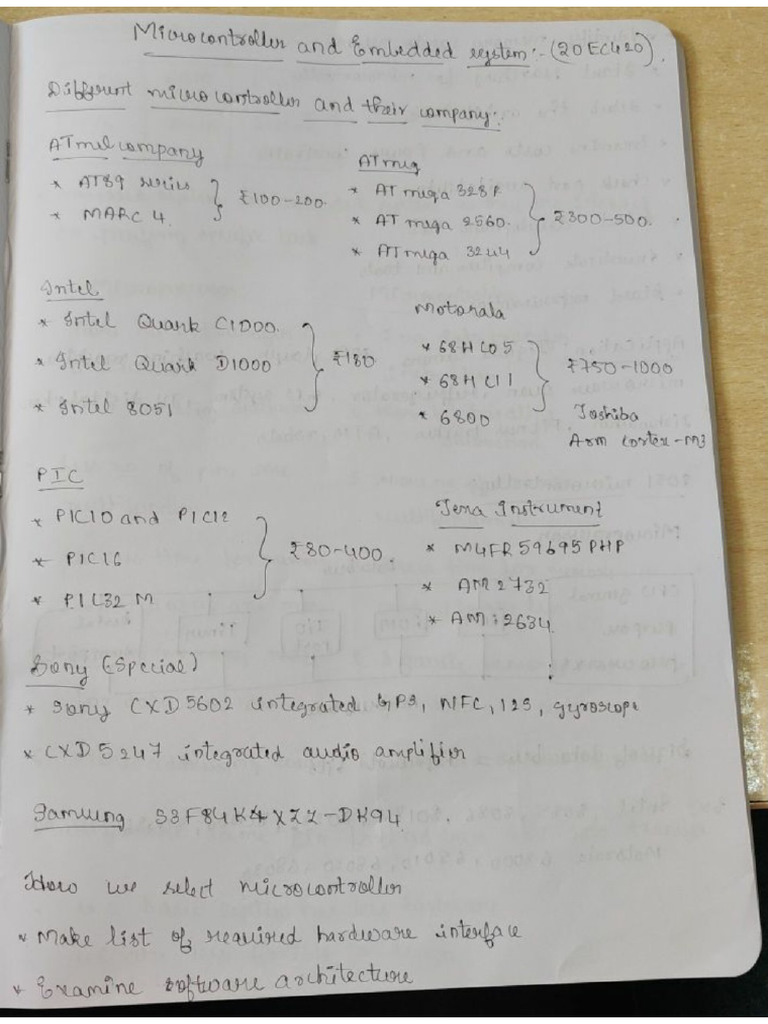 Microcontroller and Embedded system:- (20EC420)
Different microcontroller and their company:
ATmel company
* AT89 series
* MARC 4
₹100-200.
ATmega
* ATmega 328P
* ATmega 2560.
* ATmega 3244
₹300-500.
Intel
* Intel Quark C1000.
* Intel Quark D1000
* Intel 8051
₹180
Motorala
* 68HC05
* 68HC11
* 6800
₹750-1000
Toshiba
Arm cortex-M3
PIC
* PIC10 and PIC12
* PIC16
* PIC32 M
₹80-400.
Texa Instrument
* M4FR59695PHP
* AM2732
* AM:2634
Sony (Special)
* Sony CXD5602 integrated GPS, NFC, I2S, gyroscope
* CXD5247 integrated audio amplifier
Samsung S3F84K4XZZ-DK94.
How we select microcontroller
* Make list of required hardware interface
* Examine software architecture